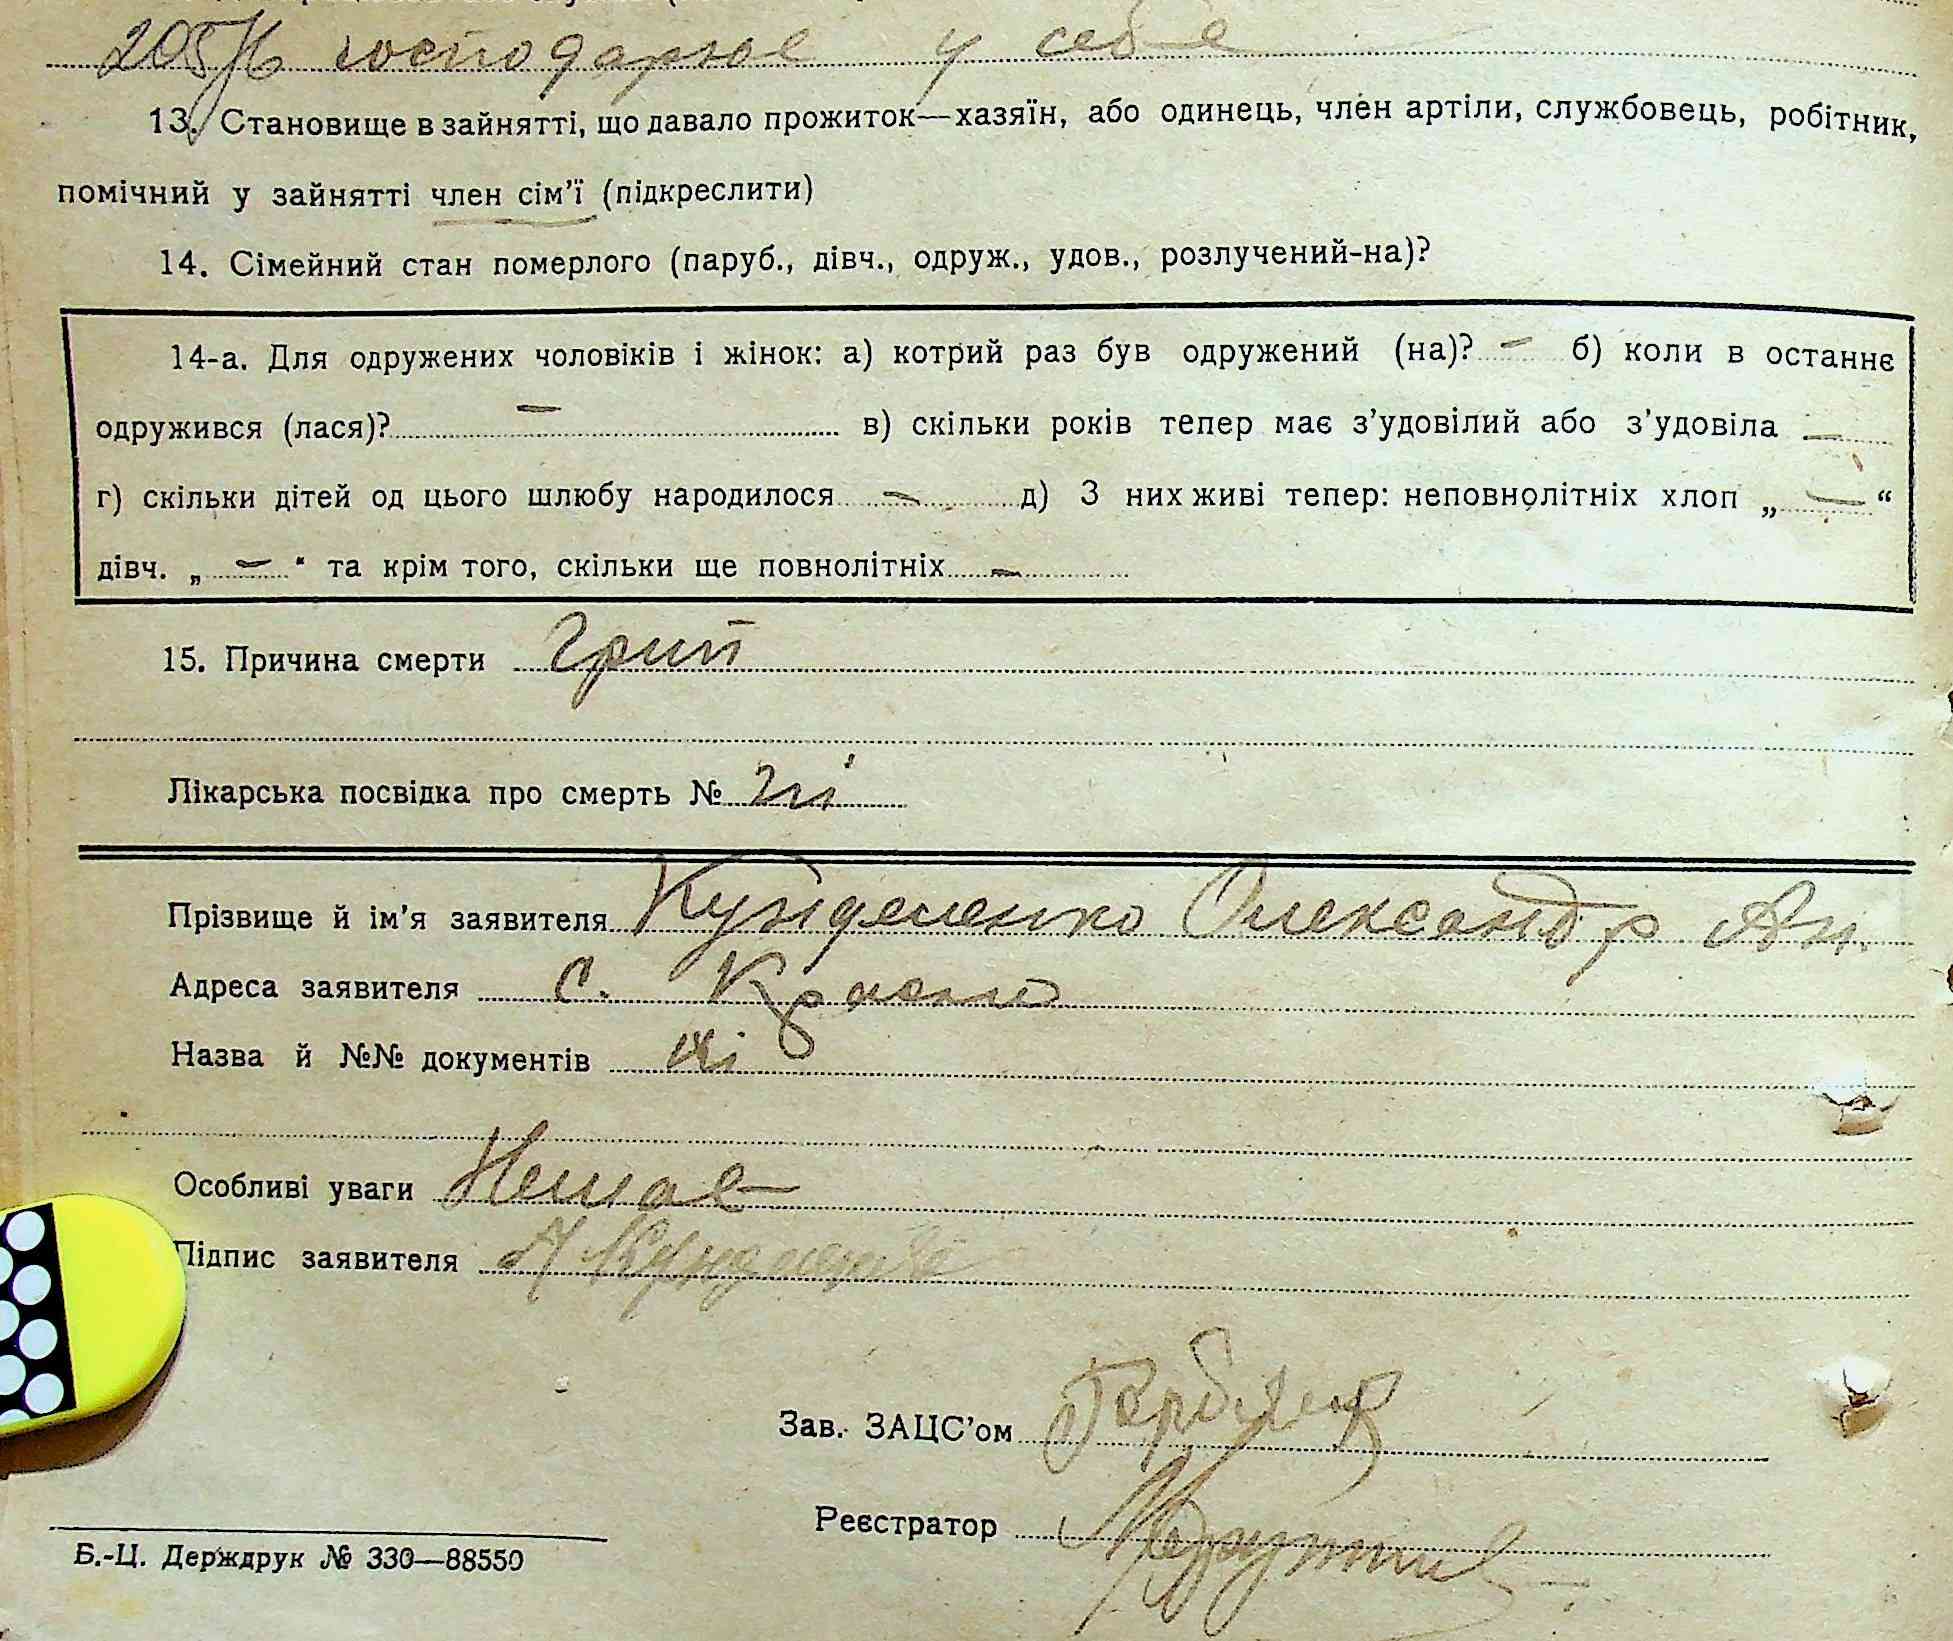 господарює у себе
13. Становище в зайнятті, що давало прожиток—хазяїн, або одинець, член артіли, службовець, робітник,
помічний у зайнятті член сім’ї (підкреслити)
14. Сімейний стан померлого (паруб., дівч., одруж., удов., розлучений-на)?
14-а. Для одружених чоловіків і жінок: а) котрий раз був одружений (на)? — б) коли в останнє
одружився (лася)? — в) скільки років тепер має з’удовілий або з’удовіла —
г) скільки дітей од цього шлюбу народилося — д) З них живі тепер: неповнолітніх хлоп „ — “
дівч. „ — “ та крім того, скільки ще повнолітніх —
15. Причина смерти Грип
Лікарська посвідка про смерть №
Прізвище й ім’я заявителя Олександр Ан.
Адреса заявителя с. Красне
Назва й №№ документів ні
Особливі уваги Немає
Підпис заявителя
Зав. ЗАЦС’ом
Реєстратор
Б.-Ц. Держдрук № 330—88550